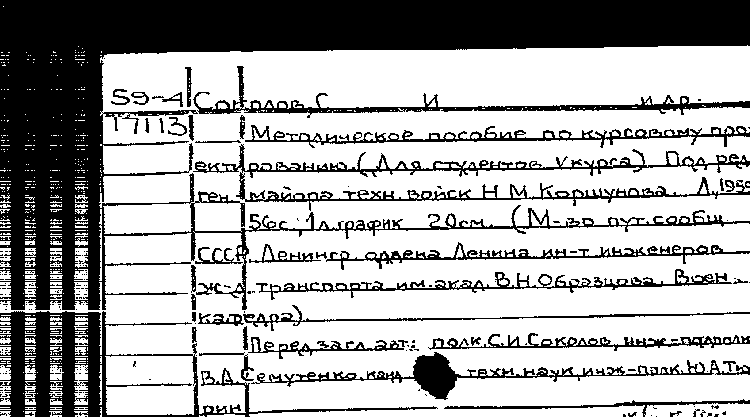 59-4 Соколов, С И и др.
17113 Методическое пособие по курсовому про
ектированию. (Для студентов V курса). Под ред.
ген.-майора техн. войск Н.М. Коршунова. Л., 1955
56с.; 1л. график. 20см. (М-во пут. сообщ.
СССР. Ленингр. ордена Ленина ин-т инженеров
ж-д. транспорта им. акад. В.Н. Образцова. Воен.
кафедра).
Перед загл. авт.: полк. С.И. Соколов, инж-подполк
В.Д. Семутенко, канд. техн. наук, инж-полк. Ю.А. Тю
рин